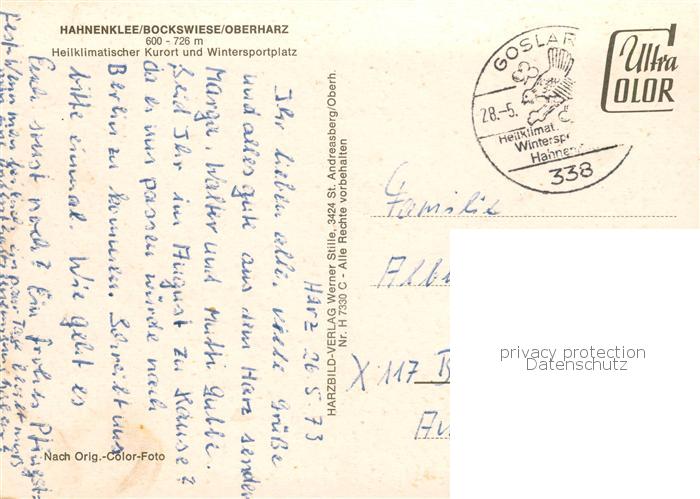 HAHNENKLEE/BOCKSWIESE/OBERHARZ
600 - 726 m
Heilklimatischer Kurort und Wintersportplatz
Harz 26 5 73
Ihr lieben alle. Viele Grüße
und alles gute aus dem Harz senden
Marga, Walter und Mutti
Seid Ihr im August zu Hause?
da es uns passen würde nach
Berlin zu kommen. Schreibt uns
bitte einmal. Wie geht es
Euch sonst noch? Ein frohes Pfingst-
fest.
Nach Orig.-Color-Foto
HARZBILD-VERLAG Werner Stille, 3424 St. Andreasberg/Oberh.
Nr. H 7330 C - Alle Rechte vorbehalten
GOSLAR
28.-5.
Heilklimat.
Wintersp
Hahnen
338
Ultra
COLOR
Familie
X 117 B
privacy protection
Datenschutz